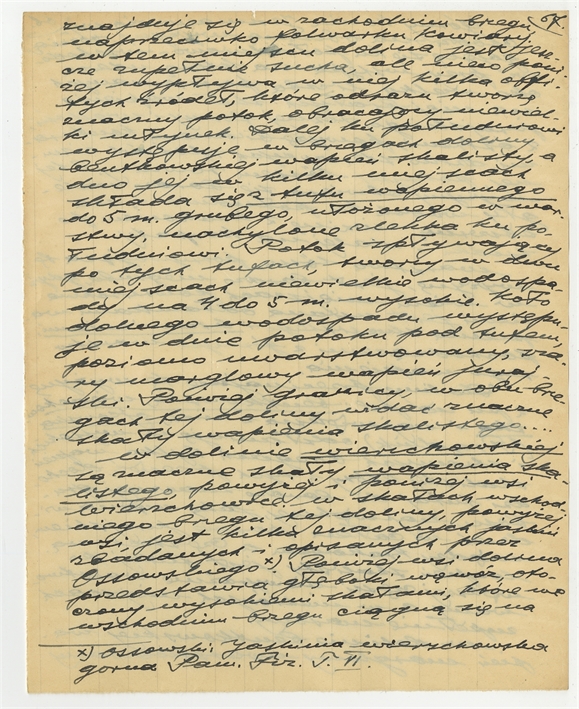 67.
znajduje się w zachodnim brzegu
naprzeciwko folwarku Kowiory,
w tem miejscu dolina jest jesz-
cze zupełnie sucha, ale nieco poni-
żej wypływa w niej kilka obfi-
tych źródeł, które odrazu tworzą
znaczny potok, obracający niewiel-
ki młynek. Dalej ku południowi
występuje w brzegach doliny
będkowskiej wapień skalisty, a
dno jej w kilku miejscach
składa się z tufu wapiennego
do 5 m. grubego, ułożonego w war-
stwy, nachylone zlekka ku po-
łudniowi. Potok spływający
po tych tufach, tworzy w dwu
miejscach niewielkie wodospa-
dy na 4 do 5 m. wysokie. Koło
dolnego wodospadu występu-
je w dnie potoku pod tufem,
poziomo uwarstwowany, sza-
ry marglowy wapień juraj-
ski. Powyżej granicy, w obu brze-
gach tej doliny widać znaczne
skały wapienia skalistego...
W dolinie wierzchowskiej
są znaczne skały wapienia ska-
listego, powyżej i poniżej wsi
Wierzchowice. W skałach wschod-
niego brzegu tej doliny, powyżej
wsi, jest kilka znacznych jaskiń
zbadanych i opisanych przez
Ossowskiego x) Poniżej wsi dolina
przedstawia głęboki wąwóz, oto-
czony wysokiemi skałami, które we
wschodnim brzegu ciągną się na
x) Ossowski: Jaskinia wierzchowska
górna Pam. Fiz. T. VI.